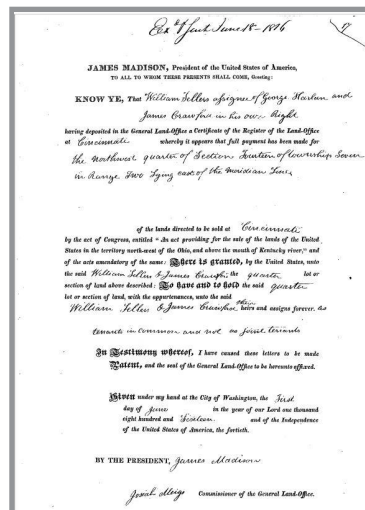 Ex d & sent June 18 - 1816
JAMES MADISON, President of the United States of America,
TO ALL TO WHOM THESE PRESENTS SHALL COME, Greeting:
KNOW YE, That William Sellers assignee of George Harlan and
James Crawford in his own Right
having deposited in the General Land-Office a Certificate of the Register of the Land-Office
at Cincinnati whereby it appears that full payment has been made for
the Northwest quarter of Section Fourteen of township Seven
in Range Two Lying east of the Meridian Line,
of the lands directed to be sold at Cincinnati
by the act of Congress, entitled “An act providing for the sale of the lands of the United
States in the territory north-west of the Ohio, and above the mouth of Kentucky river,” and
of the acts amendatory of the same: There is granted, by the United States, unto
the said William Sellers & James Crawford the quarter lot or
section of land above described: To have and to hold the said quarter
lot or section of land, with the appurtenances, unto the said
William Sellers & James Crawford their heirs and assigns forever. as
tenants in common and not as joint tenants
In Testimony whereof, I have caused these letters to be made
Patent, and the seal of the General Land-Office to be hereunto affixed.
Given under my hand at the City of Washington, the First
day of June in the year of our Lord one thousand
eight hundred and Sixteen and of the Independence
of the United States of America, the fortieth.
BY THE PRESIDENT, James Madison
Josiah Meigs Commissioner of the General Land-Office.